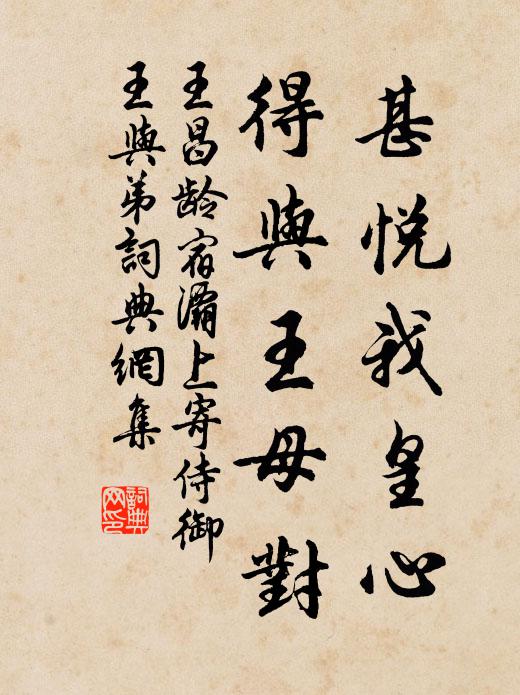 甚悦我皇心
得與王母對
王昌龄宿灞上寄侍御
王與弟詞典網集
詞典
网印